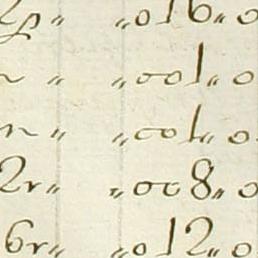 „ „016„0
„ „001„0
„ „001„0
2r„ „008„0
6r„ „012„0